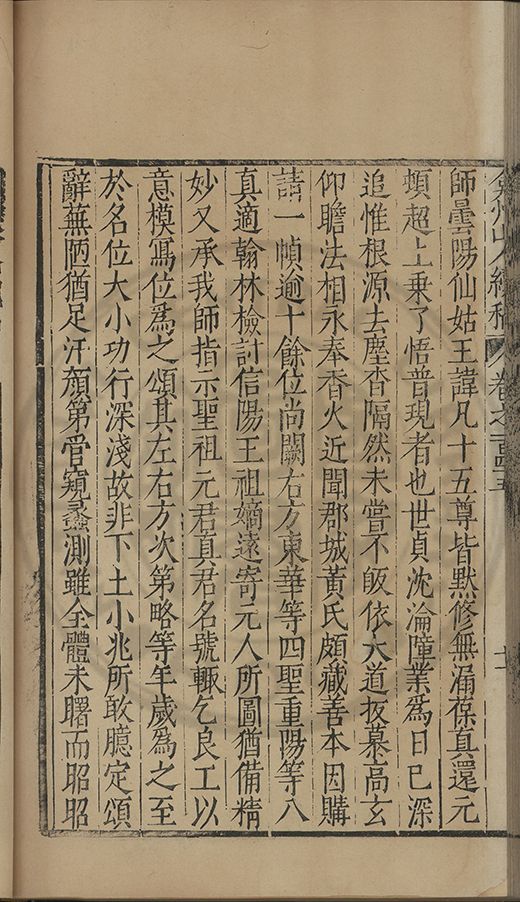 弇州山人續稿 卷之一百五十五 十一
師曇陽仙姑王諱凡十五尊皆默修無漏葆真還元
頓超上乗了悟普現者也世貞沈淪障業爲日已深
追惟根源去塵杳隔然未嘗不皈依大道扳慕高玄
仰瞻法相永奉香火近聞郡城黃氏頗藏善本因購
請一幀逾十餘位尚闕右方東華等四聖重陽等八
真適翰林檢討信陽王祖嫡遠寄元人所圖猶備精
妙又承我師指示聖祖元君真君名號輒乞良工以
意模寫位爲之頌其左右方次第略等年歲爲之至
於名位大小功行深淺故非下土小兆所敢臆定頌
辭蕪陋猶足汗顏第管窺蠡測雖全體未曙而昭昭